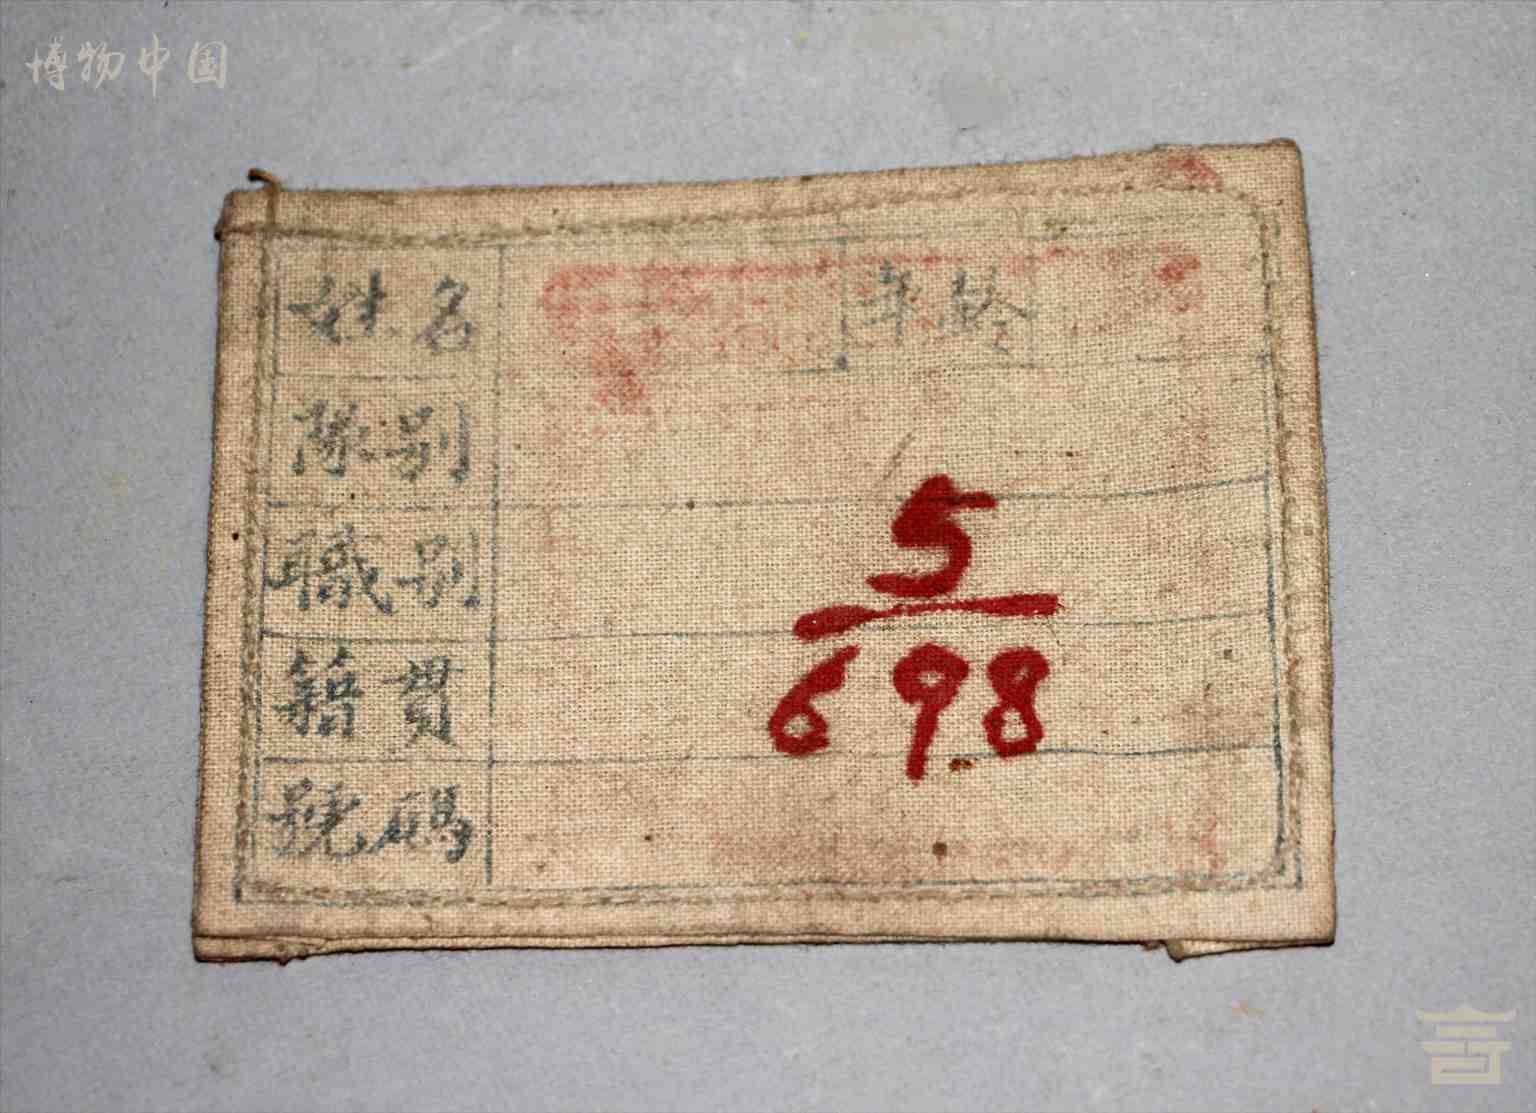 博物中国
姓名 年龄
隊别
職别
籍贯
號碼
5
698